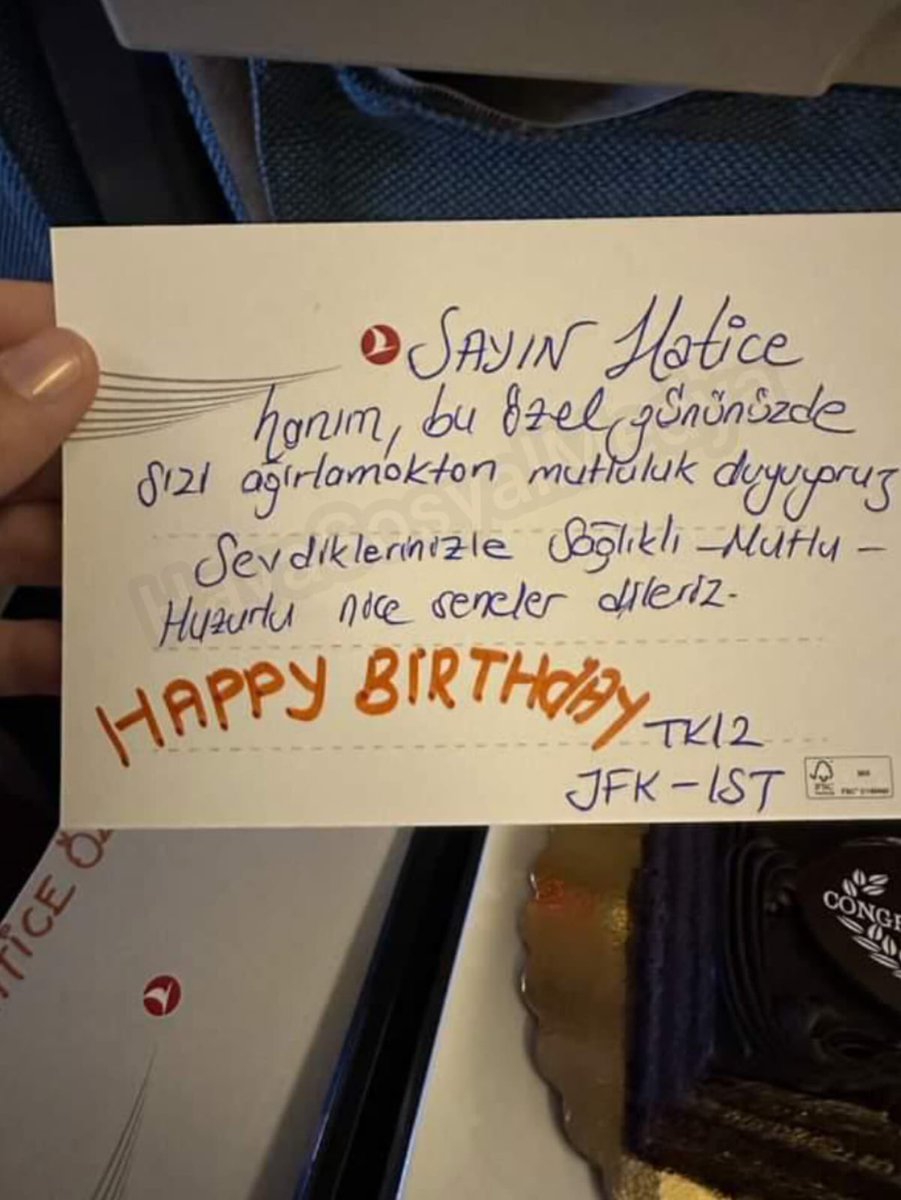 SAYIN Hatice
hanım, bu özel gününüzde
sizi ağırlamaktan mutluluk duyuyoruz
Sevdiklerinizle Sağlıklı - Mutlu -
Huzurlu nice seneler dileriz.
HAPPY BIRTHdAY
TK12
JFK - IST
FSC
TİCE Ö
CONGR